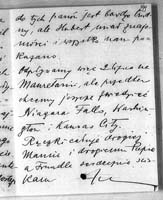 do tych panów jest bardzo trud
ny, ale Hubert miał znajo
mości i wszystko nam po
kazano.
Odpływamy więc 2 lipca na
Mauretanii, ale przedtem
chcemy jeszcze zwiedzić
Niagara Falls, Washin
gton i Kansas City.
Rączki całuję drogiej
Mamie, i drogiemu Papie
a Frundle serdecznie ści
skam